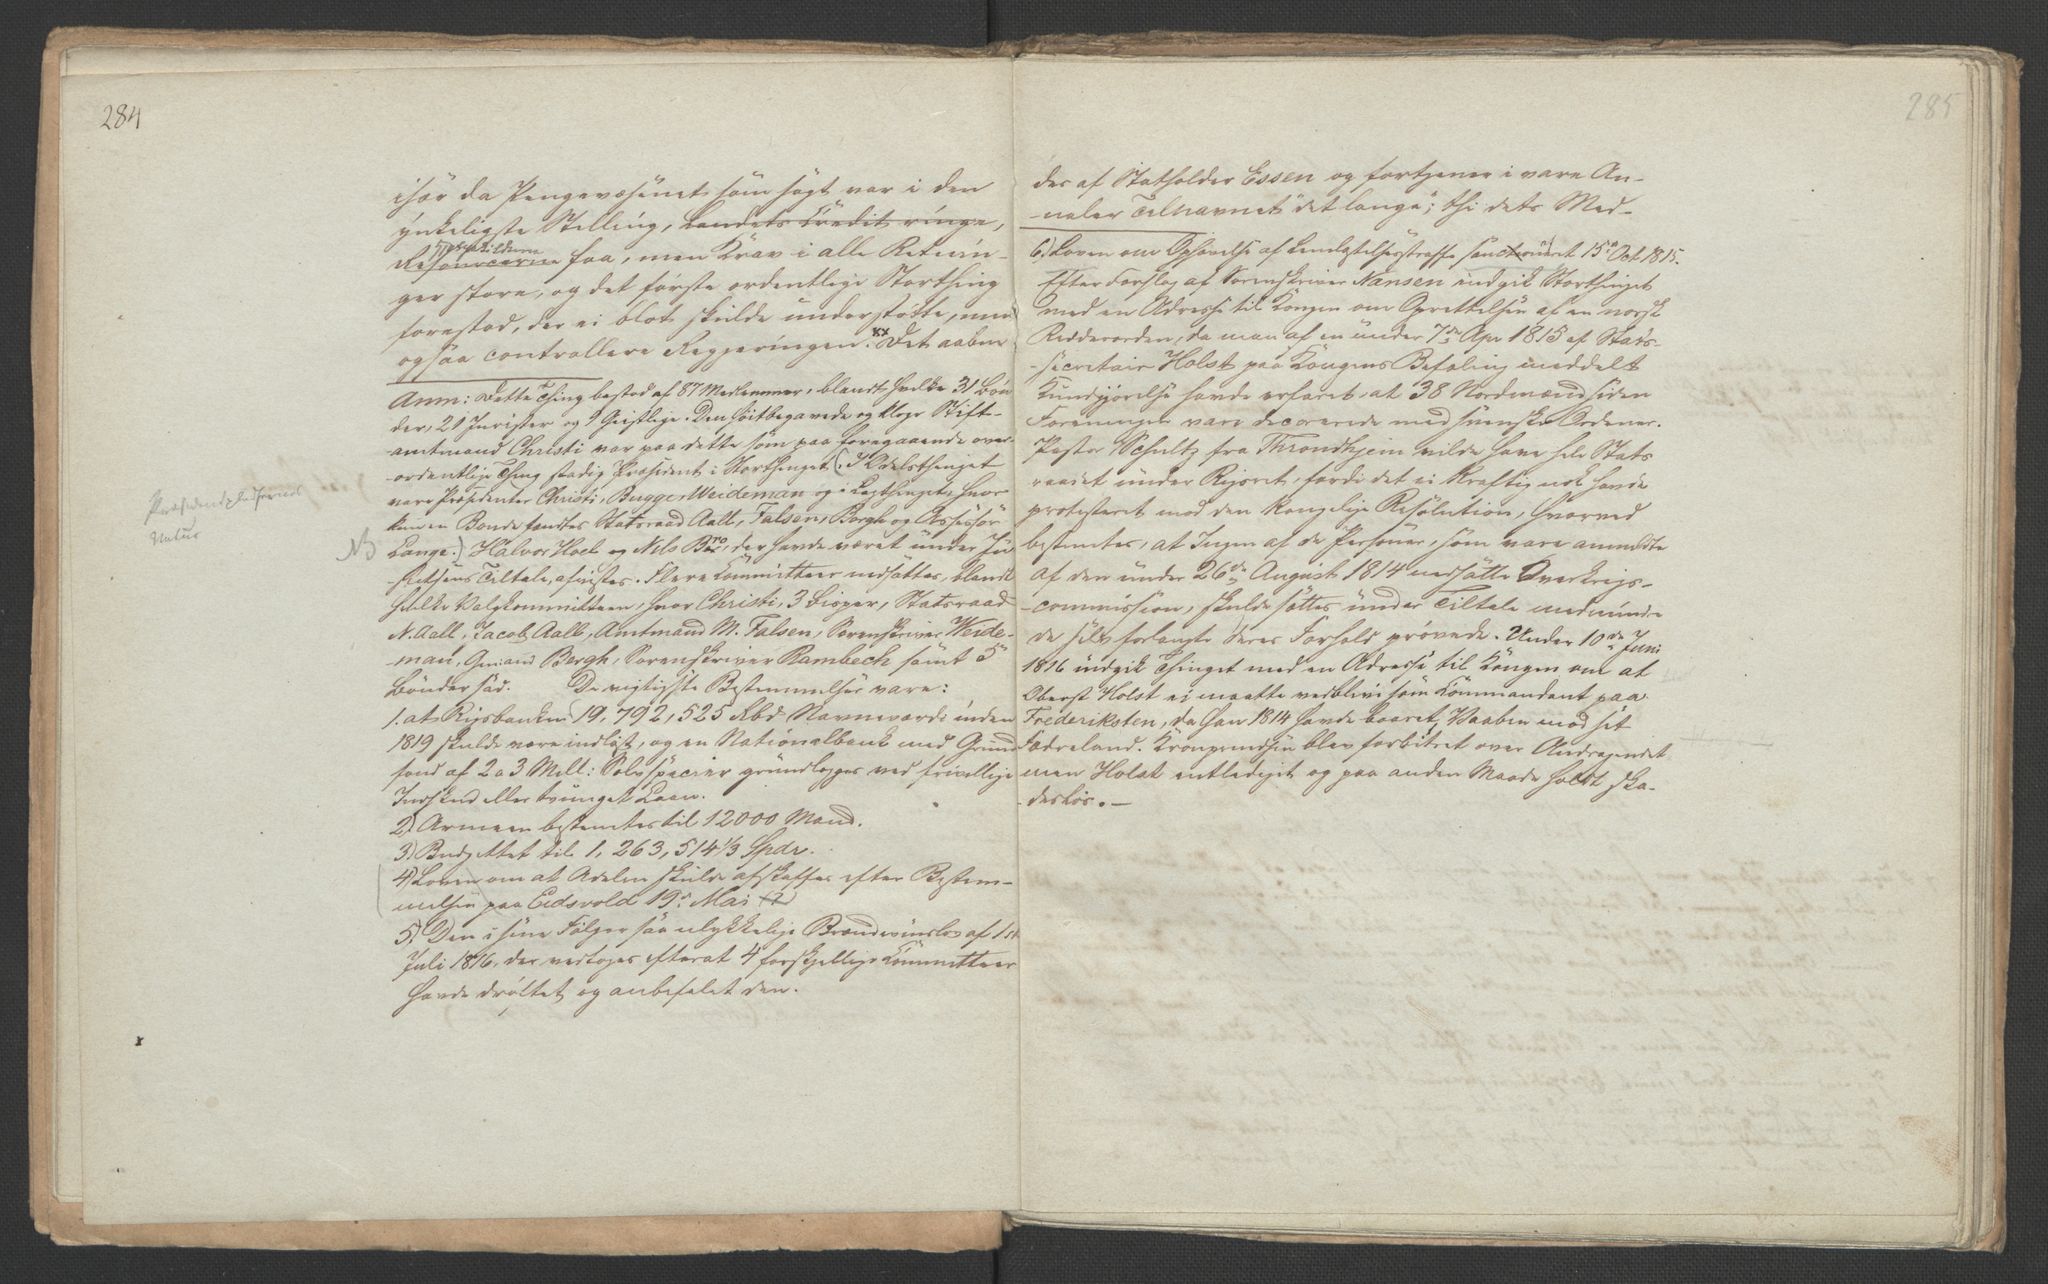 284
især da Pengevæsenet som sagt var i den
ynkeligste Stilling, Landets Credit ringe,
Resourcerne faa, men Krav i alle Retnin-
ger store, og det første ordentlige Storthing
forestod, der ei blot skulde understøtte, men
ogsaa controllere Regjeringen. xx Det aabne
Anm: Dette Thing bestod af 87 Medlemmer, blandt hvilke 31 Bøn
der, 21 Jurister og 9 Geistlige. Den høitbegavede og kloge Stift-
amtmand Christi var paa dette som paa foregaaende over-
ordentlige Thing stadig Præsident i Storthinget (I Odelsthinget
vare Præsidenter Christi, Bugge, Weideman og i Lagthinget, hvor
kun en Bonde fandtes Statsraad Aall, Falsen, Bergh og Assessor
Lange.) Halvor Hoel og Niels Bøe, der havde været under Ju
stitsens Tiltale, afvistes. Flere Committeer nedsattes, blandt
hvilke Valgkommitteen, hvor Christi, 3 Bisper, Statsraad
N. Aall, Jacob Aall, Amtmand M. Falsen, Sorenskriver Weide-
man, Bergh, Sorenskriver Rambech samt 5
Bønder sad. De vigtigste Bestemmelser vare:
1. at Rigsbankens 19,792,525 Rbd Navneværdi inden
1819 skulde være indløst, og en Nationalbank med Grund
fond af 2 a 3 Mill: Sølvspecier grundlægges ved frivillige
Indskud eller tvunget Laan.
2) Armeen bestemtes til 12000 Mand.
3) Budgettet til 1,263,514 1/3 Spdr.
4) Loven om at Adelen skulde afskaffes efter Bestem-
melsen paa Eidsvold 19: Mai (?)
5) Den i sine Følger saa ulykkelige Brændeviinslov af 1st
Juli 1816, der vedtoges efterat 4 forskjellige Committeer
havde drøftet og anbefalet den.
Præsidentpladsernes
Natur
NB
285
des af Statholder Essen og fortjener i vare An-
-naler Tilnavnet "det lange"; thi dets Med-
6) Loven om Ophævelse af Lemlæstelsesstraffe sanctioneret 15de Oct 1815.
Efter Forslag af Sorenskriver Nansen indgik Storthinget
med en Adresse til Kongen om Oprettelsen af en norsk
Ridderorden, da man af en under 7de Apr 1815 af Stats-
-secretair Holst paa Kongens Befaling meddelt
Kundgjørelse havde erfaret, at 38 Nordmænd siden
Foreningen vare decorerede med svenske Ordener.
Pastor Schultz fra Throndhjem vilde have hele Stats
raadet under Rigsret, fordi det ei kraftig nok havde
protesteret mod den kongelige Resolution, hvorved
bestemtes, at Ingen af de Personer, som vare anmeldte
af den under 26de August 1814 nedsatte Overkrigs-
-commission, skulde sættes under Tiltale medmindre
de selv forlangte deres Forhold prøvede. Under 10de Juni
1816 indgik Thinget med en Adresse til Kongen om at
Oberst Holst ei maatte vedblive som Commandant paa
Frederiksten, da han 1814 havde baaret Vaaben mod sit
Fædreland. Kronprindsen blev forbitret over Andragendet
men Holst entlediget og paa anden Maade holdt ska-
desløs. —